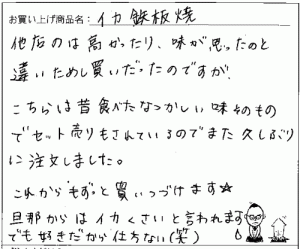 お買い上げ商品名： イカ鉄板焼
他店のは高かったり、味が思ったのと
違いためし買いだったのですが、
こちらは昔食べたなつかしい味そのもの
でセット売りもされているのでまた久しぶり
に注文しました。
これからもずっと買いつづけます☆
旦那からはイカくさいと言われます
でも好きだから仕方ない(笑)